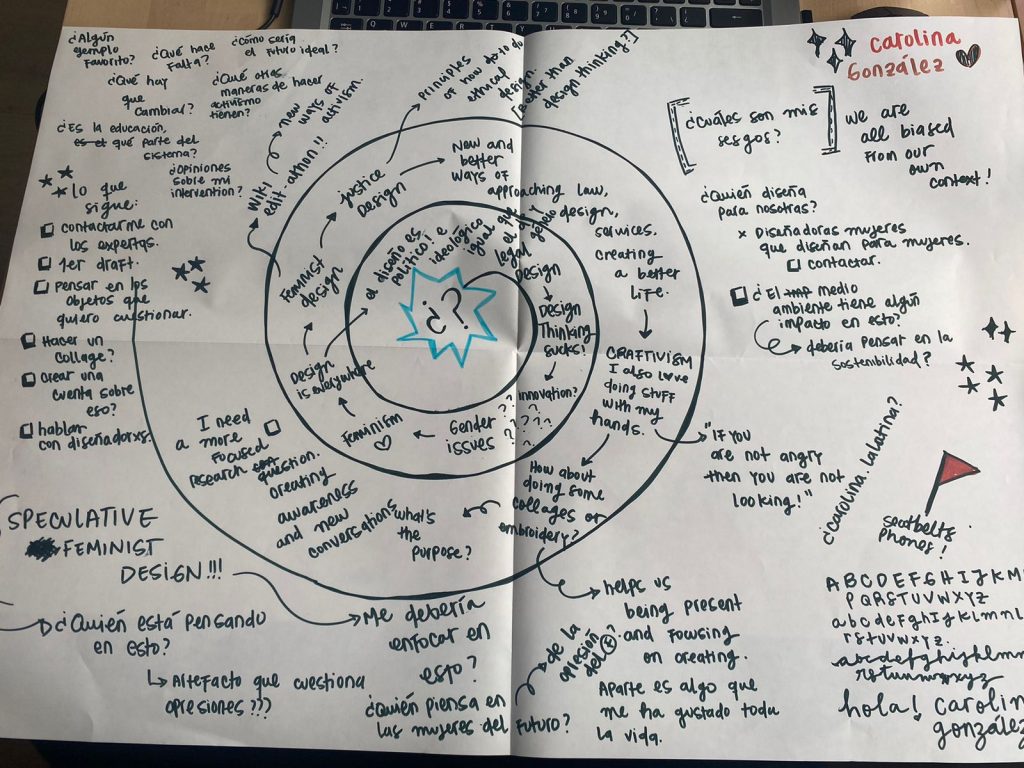 ¿Algún
ejemplo
favorito?
¿Qué hace
falta?
¿Cómo sería
el futuro ideal?
¿Qué hay
que
cambiar?
¿Qué otras
maneras de hacer
activismo
tienen?
¿Es la educación,
es el qué parte del
sistema?
¿Opiniones
sobre mi
intervención?
lo que
sigue:
contactarme con
los expertxs.
1er draft.
Pensar en los
objetos que
quiero cuestionar.
Hacer un
collage?
Crear una
cuenta sobre
eso?
hablar
con diseñadorxs.
¿?
Design
Design
Thinking
sucks!
innovation?
? ? ? ? ? ?
Gender
issues
Feminism
Design
is everywhere
el diseño es
político e
ideológico
igual que
el
legal
género
Feminist
design
Wiki
edit-athon!!
new
ways of
activism.
Justice
Design
principles
of how to to do
ethical
design.
[Rather than
design thinking?]
New and
better
ways of
approaching law,
design,
services.
creating
a better
life.
CRAFTIVISM
I also love
doing stuff
with my
hands.
"If you
are not angry
then you are not
looking!"
How about
doing some
collages or
embroidery?
helps us
being present
and focusing
on creating.
Aparte es algo que
me ha gustado toda
la vida.
what's
the
purpose?
creating
awareness
and new
conversations
I need
a more
focused
research question.
SPECULATIVE
FEMINIST
DESIGN!!!
¿Quién está pensando
en esto?
Artefacto que cuestiona
opresiones???
Me debería
enfocar en
esto?
¿Quién piensa en
las mujeres del futuro?
de la
opresión
del
Carolina
González
[¿Cuáles son mis
sesgos?]
we are
all biased
from our
own
context!
¿Quién diseña
para nosotras?
x Diseñadoras mujeres
que diseñan para mujeres.
contactar.
¿El medio
ambiente tiene algún
impacto en esto?
debería pensar en la
sostenibilidad?
¿Carolina Latina?
seatbelts
phones!
A B C D E F G H I J K M
P Q R S T U V W X Y Z
a b c d e f g h i j k l m n
r s t u v w x y z.
hola! Carolin
gonzález